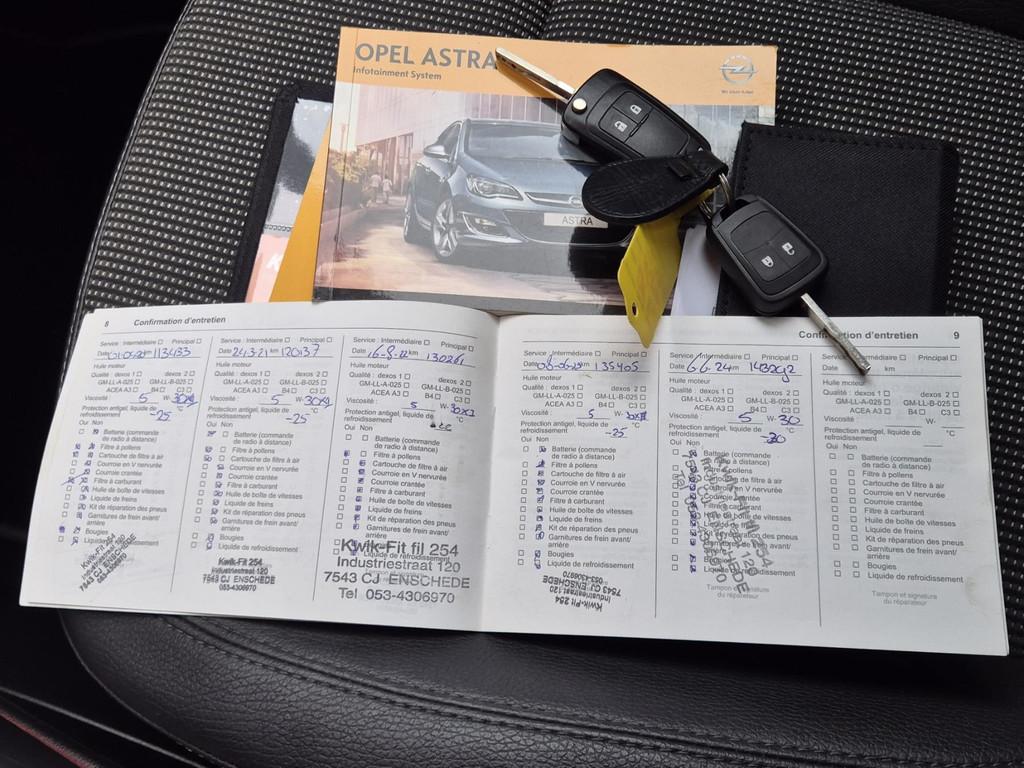 OPEL ASTRA
Infotainment System
ASTRA
8 Confirmation d'entretien
Service : Intermédiaire Principal
Date km 113433
Huile moteur
Qualité : dexos 1 dexos 2
GM-LL-A-025 GM-LL-B-025
ACEA A3 B4 C3
Viscosité : 5 W-
Protection antigel, liquide de refroidissement °C
-25
Oui Non
Batterie (commande
de radio à distance)
Filtre à pollens
Cartouche de filtre à air
Courroie en V nervurée
Courroie crantée
Filtre à carburant
Huile de boîte de vitesses
Liquide de freins
Kit de réparation des pneus
Garnitures de frein avant/
arrière
Bougies
Kwik-Fit 254
Industriestraat 120
7543 CJ ENSCHEDE
Service : Intermédiaire Principal
Date 24-3-21 km 120137
Huile moteur
Qualité : dexos 1 dexos 2
GM-LL-A-025 GM-LL-B-025
ACEA A3 B4 C3
Viscosité : 5 W-
Protection antigel, liquide de
refroidissement °C
-25
Oui Non
Batterie (commande
de radio à distance)
Filtre à pollens
Cartouche de filtre à air
Courroie en V nervurée
Courroie crantée
Filtre à carburant
Huile de boîte de vitesses
Liquide de freins
Kit de réparation des pneus
Garnitures de frein avant/
arrière
Bougies
Liquide de refroidissement
Kwik-Fit 254
Industriestraat 120
7543 CJ ENSCHEDE
053-4306970
Service : Intermédiaire Principal
Date 16-8-22 km 130261
Huile moteur
Qualité : dexos 1 dexos 2
GM-LL-A-025 GM-LL-B-025
ACEA A3 B4 C3
Viscosité : 5 W-
Protection antigel, liquide de
refroidissement
Oui Non
Batterie (commande
de radio à distance)
Filtre à pollens
Cartouche de filtre à air
Courroie en V nervurée
Courroie crantée
Filtre à carburant
Huile de boîte de vitesses
Liquide de freins
Kit de réparation des pneus
Garnitures de frein avant/
arrière
Liquide de refroidissement
Kwik-Fit fil 254
Industriestraat 120
7543 CJ ENSCHEDE
Tel 053-4306970
Confirmation d'entretien 9
Service : Intermédiaire Principal
Date km 135405
Huile moteur
Qualité : dexos 1 dexos 2
GM-LL-A-025 GM-LL-B-025
ACEA A3 B4 C3
Viscosité : 5 W-
Protection antigel, liquide de
refroidissement °C
-25
Oui Non
Batterie (commande
de radio à distance)
Filtre à pollens
Cartouche de filtre à air
Courroie en V nervurée
Courroie crantée
Filtre à carburant
Huile de boîte de vitesses
Liquide de freins
Kit de réparation des pneus
Garnitures de frein avant/
arrière
Bougies
Liquide de refroidissement
Kwik-Fit 254
Industriestraat 120
7543 CJ ENSCHEDE
053-4306970
Service : Intermédiaire Principal
Date 6-6-24 km
Huile moteur
Qualité : dexos 1 dexos 2
GM-LL-A-025 GM-LL-B-025
ACEA A3 B4 C3
Viscosité : 5 W-30
Protection antigel, liquide de
refroidissement °C
-30
Oui Non
Batterie (commande
de radio à distance)
Filtre à pollens
Cartouche de filtre à air
Courroie en V nervurée
Courroie crantée
Filtre à carburant
Huile de boîte de vitesses
Liquide de freins
Kit de réparation des pneus
Garnitures de frein avant/
arrière
Bougies
Liquide de refroidissement
Tampon et signature
du réparateur
Service : Intermédiaire Principal
Date km
Huile moteur
Qualité : dexos 1 dexos 2
GM-LL-A-025 GM-LL-B-025
ACEA A3 B4 C3
Viscosité : W-
Protection antigel, liquide de
refroidissement °C
Oui Non
Batterie (commande
de radio à distance)
Filtre à pollens
Cartouche de filtre à air
Courroie en V nervurée
Courroie crantée
Filtre à carburant
Huile de boîte de vitesses
Liquide de freins
Kit de réparation des pneus
Garnitures de frein avant/
arrière
Bougies
Liquide de refroidissement
Tampon et signature
du réparateur